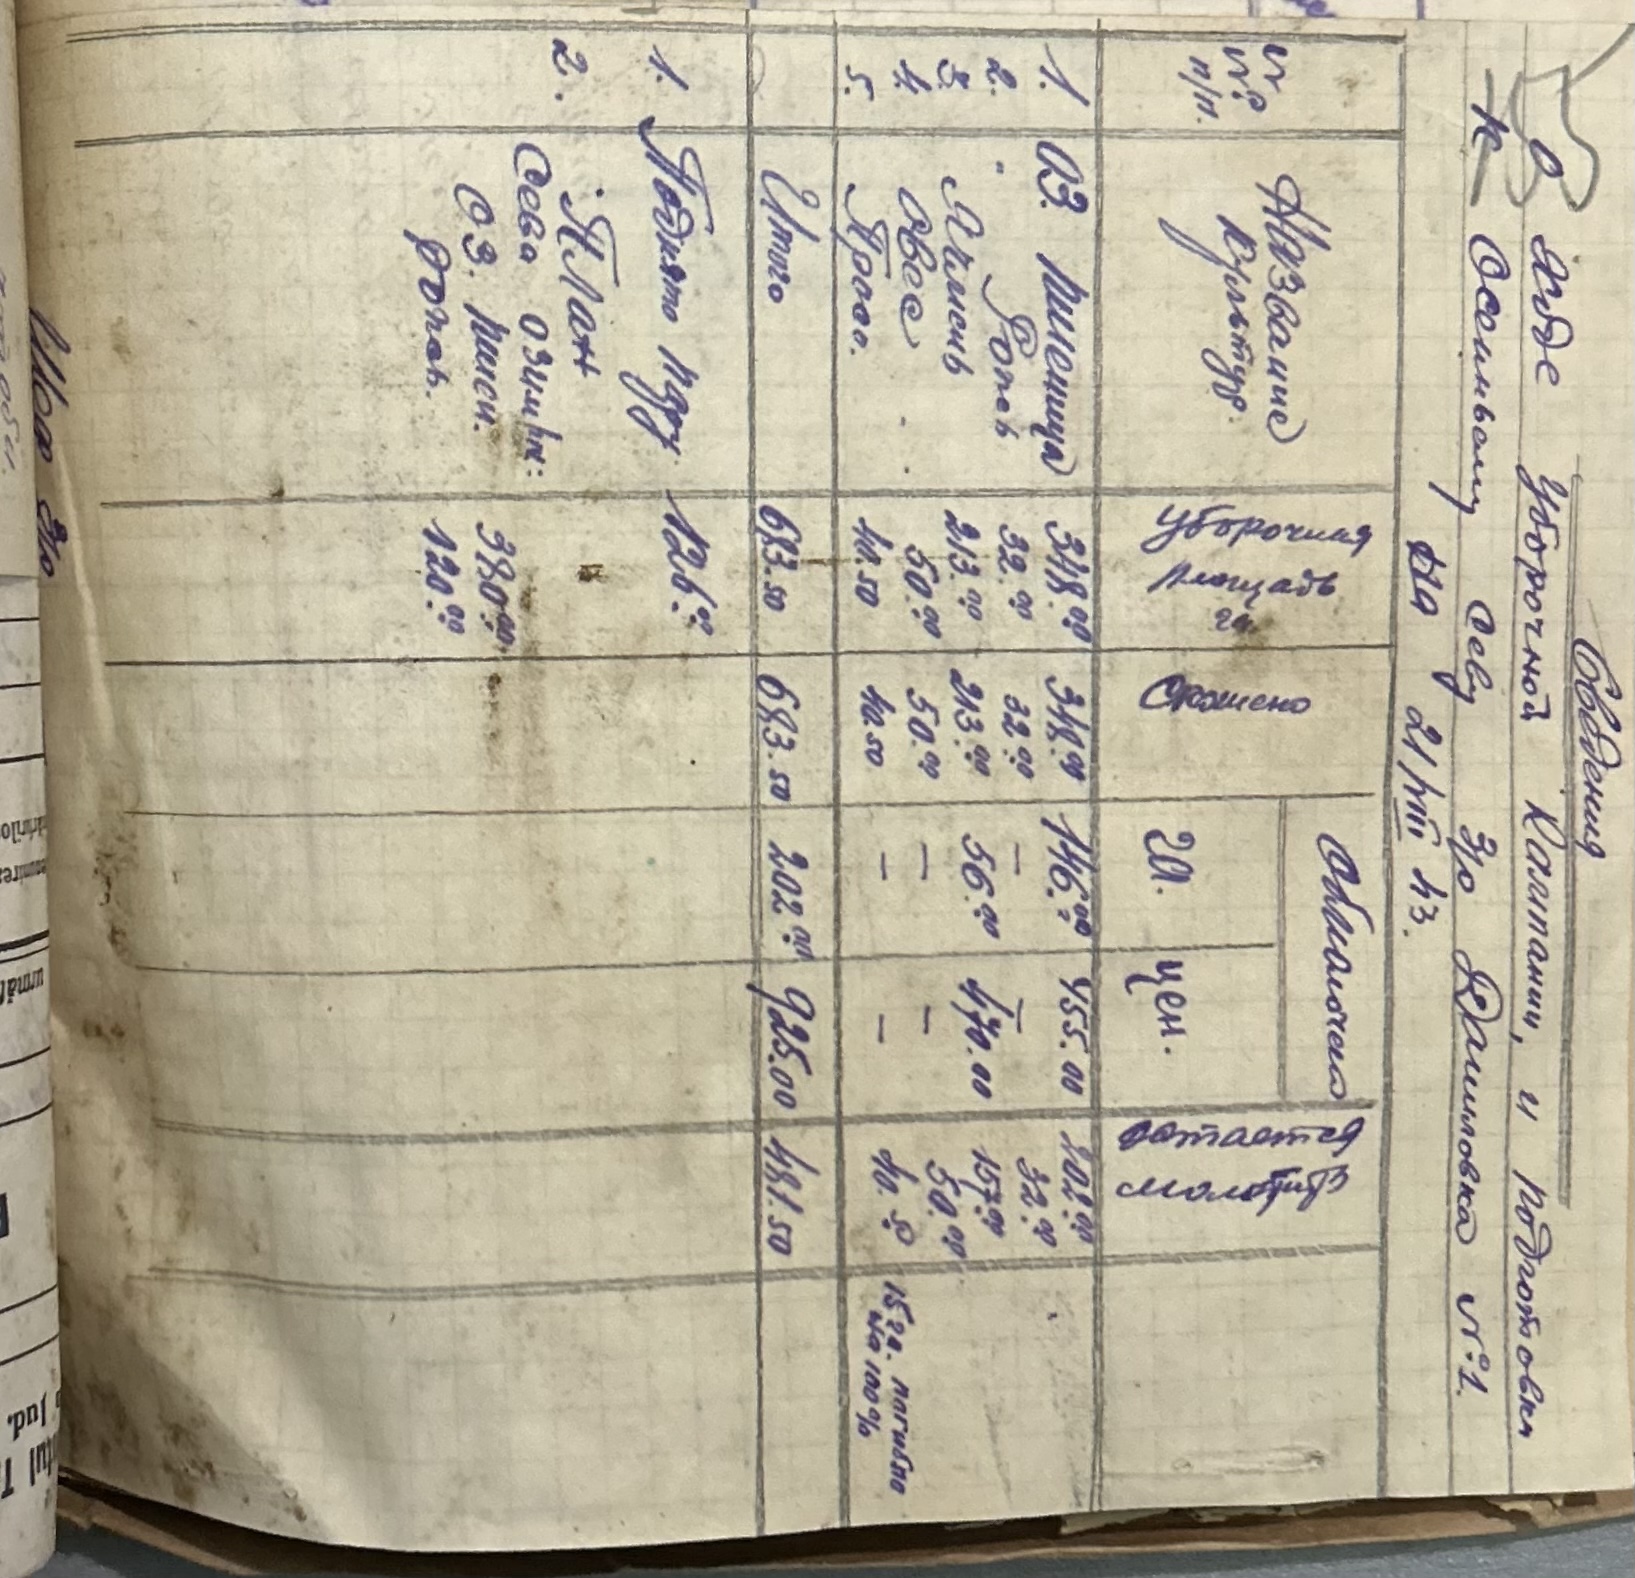 Сведения
О ходе уборочной кампании, и подготовки
к осеньому севу з/о Даниловка №1.
на 21/VIII 43.
№№ п/п. | Название культур. | Уборочная площадь га. | Скошено | Обмолочено га. | цен. | остается молотить
1. Оз. пшеница 348.00 348.00 146.00 455.00 202.00
2. " Рапс 32.00 32.00 — — 32.00
3. Ячмень 213.00 213.00 56.00 470.00 157.00
4. Овес 50.00 50.00 — — 50.00
5. Просо. 40.50 40.50 — — 40.50 15 га. погибло на 100%
Итого 683.50 683.50 202.00 925.00 481.50
1. Поднято пару 126.00
2. План
сева озимых:
Оз. пшен. 380.00
Рапс. 120.00
з/о
urmă
Jud.